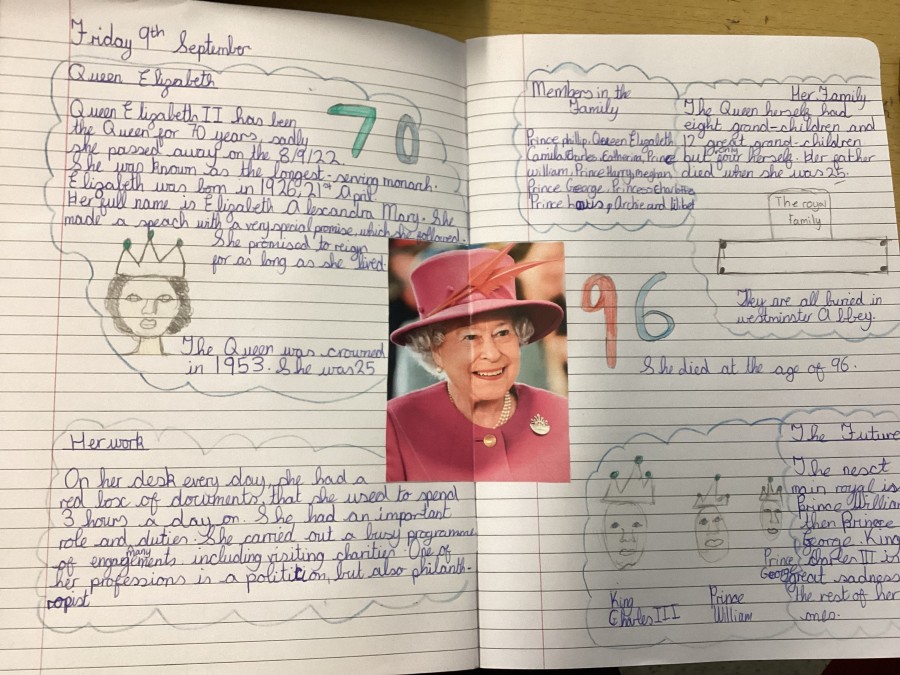 Friday 9th September
Queen Elizabeth
Queen Elizabeth II has been
the Queen for 70 years, sadly
she passed away on the 8/9/22.
She was known as the longest-serving monarch.
Elizabeth was born in 1926, 21st April.
Her full name is Elizabeth Alexandra Mary. She
made a speach with a very special promise, which she followed.
She promised to reign
for as long as she lived.
70
The Queen was crowned
in 1953. She was 25
Her work
On her desk every day, she had a
red box of documents, that she used to spend
3 hours a day on. She had an important
role and duties. She carried out a busy programme
of many engagements including visiting charities. One of
her professions is a politition, but also philanth-
ropist
Members in the
Family
Prince phillip, Queen Elizabeth
Camila, Charles, Catherine, Prince
william, Prince Harry, meghan
Prince George, Princess Charlotte
Prince Louis, Archie and lilibet
Her Family
The Queen herself had
eight grand-children and
12 great grand-children
but only four herself. Her father
died when she was 25.
The royal
Family
They are all buried in
westminster Abbey.
96
She died at the age of 96.
The Future
The next
main royal is
Prince William
then Prince
George. King
Charles III is
great sadness
the rest of her
ones.
King
Charles III
Prince
William
Prince
George